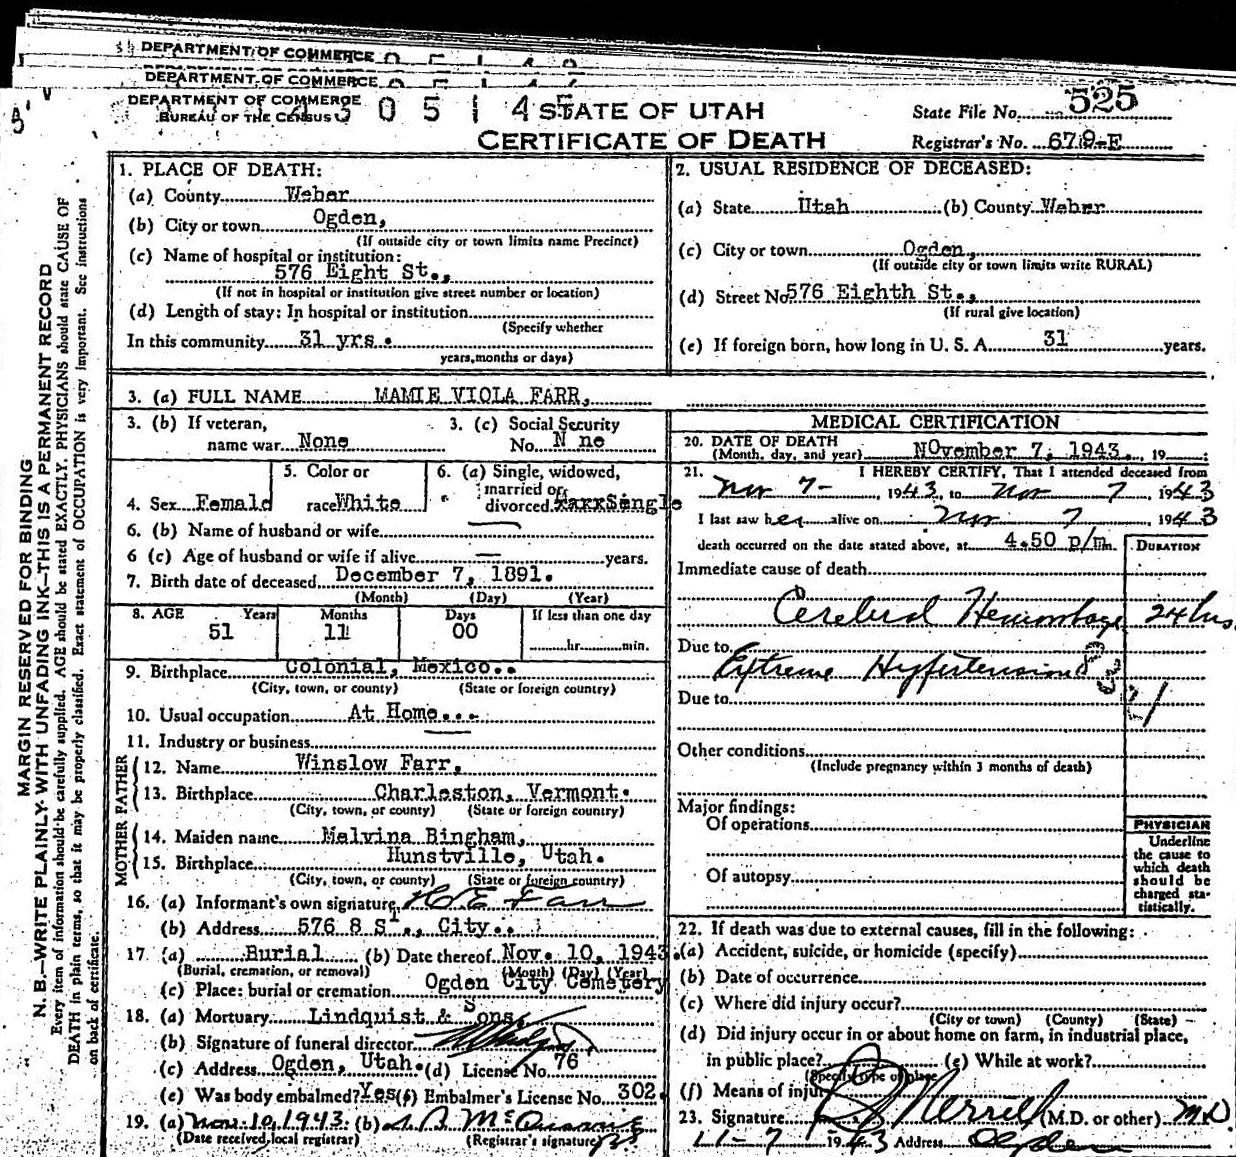 DEPARTMENT OF COMMERCE
DEPARTMENT OF COMMERCE
DEPARTMENT OF COMMERCE
BUREAU OF THE CENSUS
STATE OF UTAH
CERTIFICATE OF DEATH
State File No. 525
Registrar's No. 679-E
MARGIN RESERVED FOR BINDING
N. B.—WRITE PLAINLY WITH UNFADING INK—THIS IS A PERMANENT RECORD
Every item of information should be carefully supplied. AGE should be stated EXACTLY. PHYSICIANS should state CAUSE OF
DEATH in plain terms, so that it may be properly classified. Exact statement of OCCUPATION is very important. See instructions
on back of certificate.
1. PLACE OF DEATH:
(a) County Weber
(b) City or town Ogden,
(If outside city or town limits name Precinct)
(c) Name of hospital or institution:
576 Eight St.,
(If not in hospital or institution give street number or location)
(d) Length of stay: In hospital or institution
(Specify whether
In this community 31 yrs.
years, months or days)
2. USUAL RESIDENCE OF DECEASED:
(a) State Utah (b) County Weber
(c) City or town Ogden,
(If outside city or town limits write RURAL)
(d) Street No 576 Eighth St.,
(If rural give location)
(e) If foreign born, how long in U. S. A. 31 years.
3. (a) FULL NAME MAMIE VIOLA FARR,
3. (b) If veteran,
name war None
3. (c) Social Security
No. N ne
4. Sex Female
5. Color or
race White
6. (a) Single, widowed,
married or
divorced Single
6. (b) Name of husband or wife
6 (c) Age of husband or wife if alive — years.
7. Birth date of deceased December 7, 1891.
(Month) (Day) (Year)
8. AGE Years Months Days If less than one day
51 11 00 hr. min.
9. Birthplace Colonial, Mexico..
(City, town, or county) (State or foreign country)
10. Usual occupation At Home...
11. Industry or business
FATHER
12. Name Winslow Farr,
13. Birthplace Charleston, Vermont.
(City, town, or county) (State or foreign country)
MOTHER
14. Maiden name Melvina Bingham,
15. Birthplace Hunstville, Utah.
(City, town, or county) (State or foreign country)
16. (a) Informant's own signature H E Farr
(b) Address 576 8 St., City..
17 (a) Burial (b) Date thereof Nov. 10, 1943.
(Burial, cremation, or removal) (Month) (Day) (Year)
(c) Place: burial or cremation Ogden City Cemetery
18. (a) Mortuary Lindquist & Sons,
(b) Signature of funeral director
(c) Address Ogden, Utah. (d) License No. 76
(e) Was body embalmed? Yes (f) Embalmer's License No. 302
19. (a) Nov. 10, 1943 (b)
(Date received local registrar) (Registrar's signature)
MEDICAL CERTIFICATION
20. DATE OF DEATH
(Month, day, and year) NOvember 7, 1943., 19
21. I HEREBY CERTIFY, That I attended deceased from
Nov 7- , 1943, to Nov 7, 1943
I last saw her alive on Nov 7, 1943
death occurred on the date stated above, at 4.50 p/m.
DURATION
Immediate cause of death
Cerebral Hemorrhage 24 hrs.
Due to Extreme Hypertension
Due to
Other conditions
(Include pregnancy within 3 months of death)
Major findings:
Of operations
Of autopsy
PHYSICIAN
Underline
the cause to
which death
should be
charged sta-
tistically.
22. If death was due to external causes, fill in the following:
(a) Accident, suicide, or homicide (specify)
(b) Date of occurrence
(c) Where did injury occur?
(City or town) (County) (State)
(d) Did injury occur in or about home on farm, in industrial place,
in public place? (e) While at work?
(Specify type of place)
(f) Means of injury
23. Signature Merrill (M.D. or other) MD
11-7 1943 Address Ogden